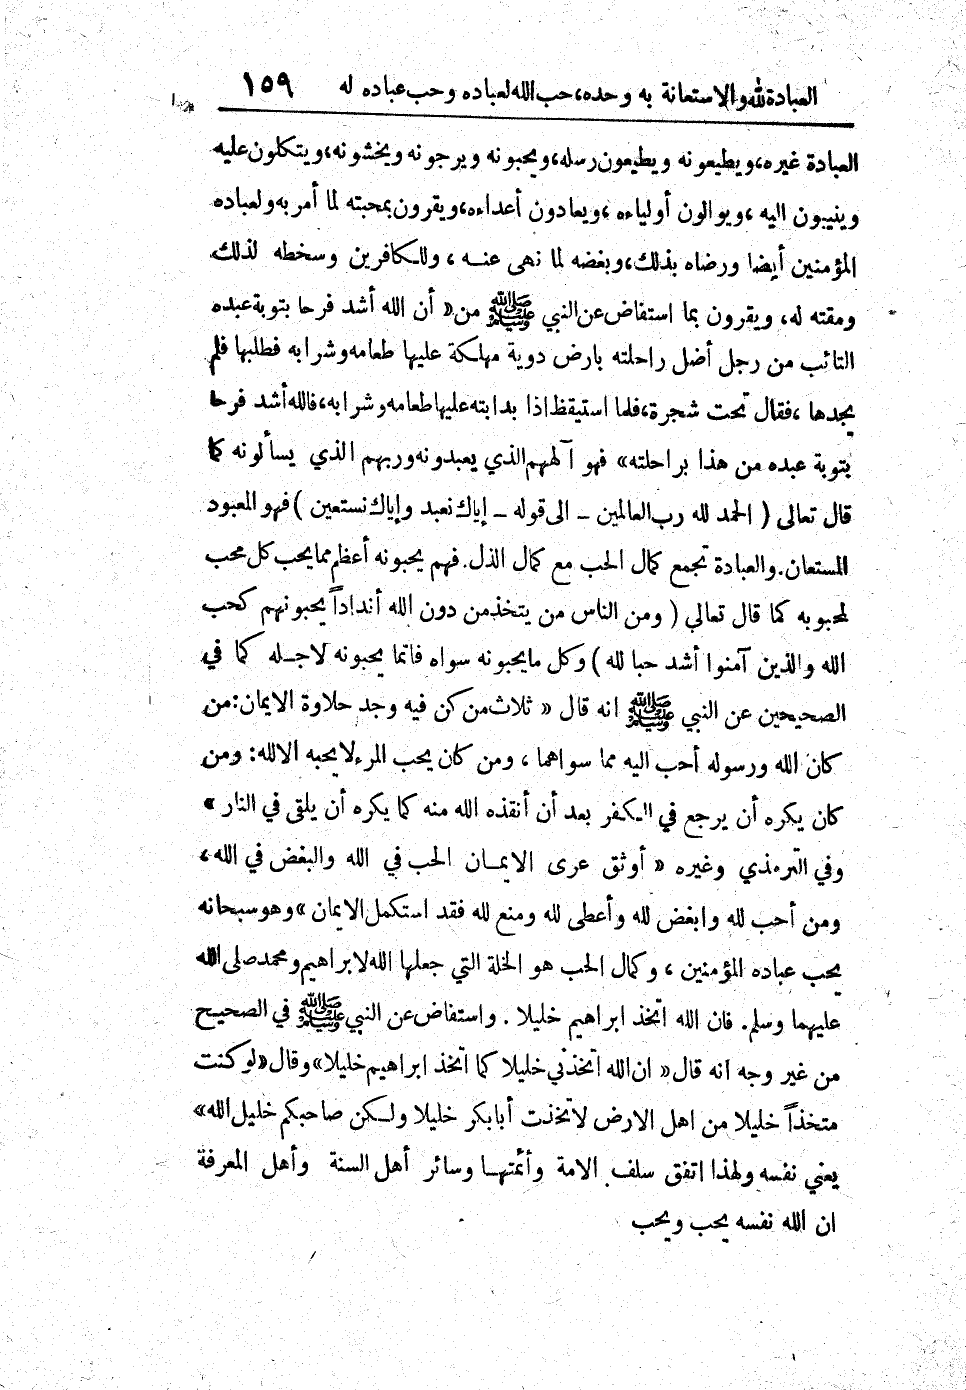 العبادة لله والاستعانة به وحده، حب الله لعباده وحب عباده له ١٥٩
العبادة غيره، ويطيعونه ويطيعون رسله، ويحبونه ويرجونه ويخشونه، ويتكلون عليه
وينيبون اليه، ويوالون أولياءه، ويعادون أعداءه، ويقرون بمحبته لما أمر به ولعباده
المؤمنين أيضا ورضاه بذلك، وبغضه لما نهى عنه، وللكافرين وسخطه لذلك
ومقته له، ويقرون بما استفاض عن النبي ﷺ من « أن الله أشد فرحا بتوبة عبده
التائب من رجل أضل راحلته بارض دوية مهلكة عليها طعامه وشرابه فطلبها فلم
يجدها، فقال تحت شجرة، فلما استيقظ اذا بدابته عليها طعامه وشرابه، فالله أشد فرحا
بتوبة عبده من هذا براحلته» فهو آلههم الذي يعبدونه وربهم الذي يسألونه كما
قال تعالى ( الحمد لله رب العالمين ـ الى قوله ـ إياك نعبد وإياك نستعين ) فهو المعبود
المستعان. والعبادة تجمع كمال الحب مع كمال الذل. فهم يحبونه أعظم مما يحب كل محب
لمحبوبه كما قال تعالى ( ومن الناس من يتخذ من دون الله أنداداً يحبونهم كحب
الله والذين آمنوا أشد حبا لله ) وكل ما يحبونه سواه فانما يحبونه لاجله كما في
الصحيحين عن النبي ﷺ انه قال « ثلاث من كن فيه وجد حلاوة الايمان: من
كان الله ورسوله أحب اليه مما سواهما، ومن كان يحب المرء لا يحبه الا لله: ومن
كان يكره أن يرجع في الكفر بعد أن أنقذه الله منه كما يكره أن يلقى في النار »
وفي الترمذي وغيره « أوثق عرى الايمان الحب في الله والبغض في الله،
ومن أحب لله وابغض لله وأعطى لله ومنع لله فقد استكمل الايمان » وهو سبحانه
يحب عباده المؤمنين، وكمال الحب هو الخلة التي جعلها الله لابراهيم ومحمد صلى الله
عليهما وسلم. فان الله اتخذ ابراهيم خليلا. واستفاض عن النبي ﷺ في الصحيح
من غير وجه انه قال « ان الله اتخذني خليلا كما اتخذ ابراهيم خليلا» وقال «لو كنت
متخذاً خليلا من اهل الارض لاتخذت أبا بكر خليلا ولكن صاحبكم خليل الله»
يعني نفسه ولهذا اتفق سلف الامة وأئمتها وسائر أهل السنة وأهل المعرفة
ان الله نفسه يحب ويحب